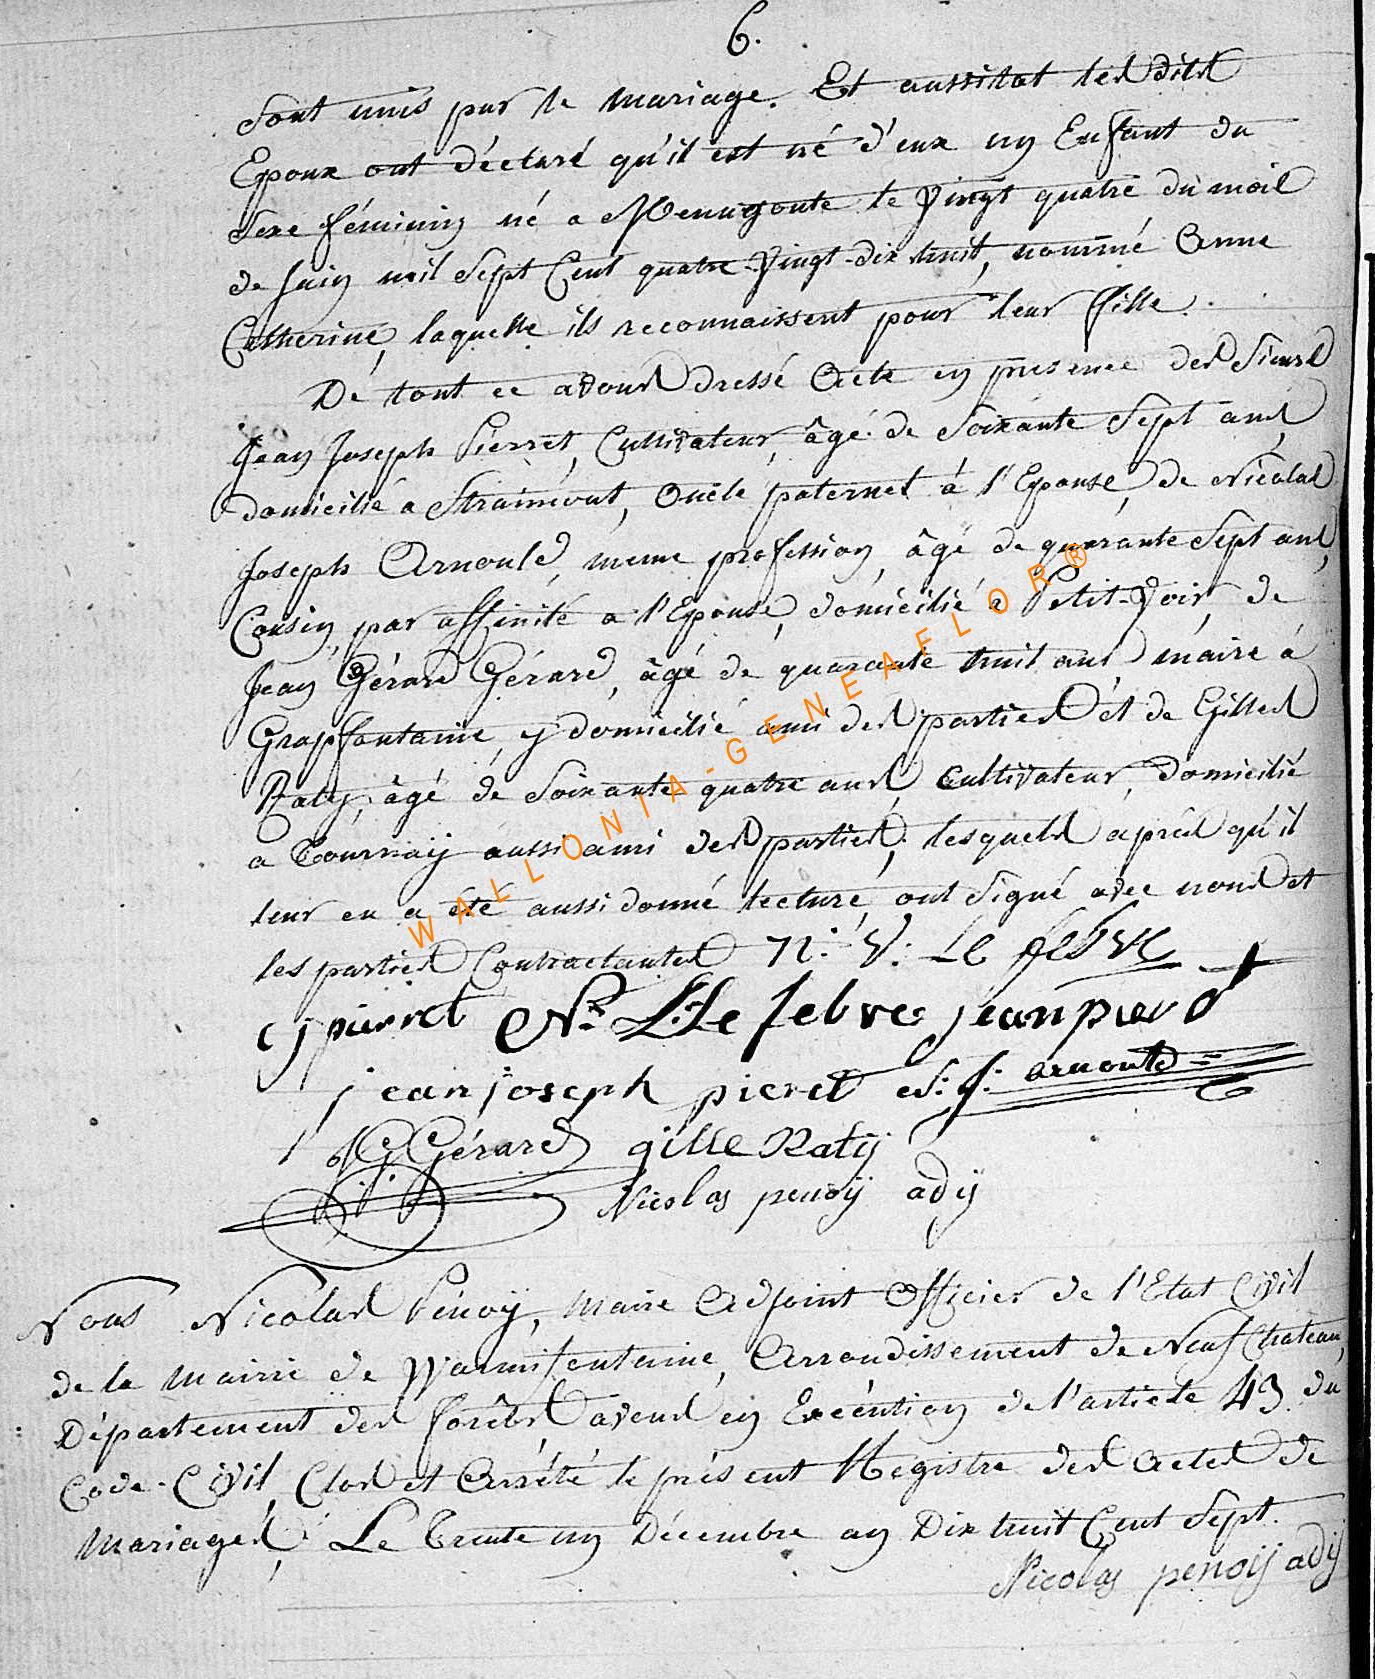 6.
Sont unis par le mariage. Et aussitot lesdits
Epoux ont déclaré qu'il est né d'eux un Enfant du
Sexe féminin né a Menugoute le vingt quatre du mois
de Juin mil Sept Cent quatre-vingt-dix huit, nommé Anne
Catherine, laquelle ils reconnaissent pour leur fille.
De tout ce avons dressé Acte en présence des Sieurs
Jean Joseph Pierret, Cultivateur, âgé de Soixante Sept ans,
domicilié a Straimont, Oncle paternel à l'Epouse, de Nicolas
Joseph Arnould, meme profession, âgé de quarante Sept ans,
Cousin par affinité a l'Epouse, domicilié a Petit-Voir, de
Jean Gérard Gérard, âgé de quarante huit ans maire à
Grapfontaine, y domicilié ami des parties et de Gilles
Raty, âgé de Soixante quatre ans, Cultivateur, domicilié
a Tournay aussi ami des parties, lesquels après qu'il
leur en a été aussi donné lecture, ont signé avec nous et
les parties Contractantes N: J: Le febvre
j pierret N: L: Le febvre jean pierd
jean joseph pieret N: J: arnould
J G Gérard gille Raty
Nicolas penoÿ adÿ
Nous Nicolas Penoÿ, Maire Adjoint Officier de l'Etat Civil
de la Mairie de Warmifontaine, Arrondissement de Neufchateau,
Département des forêts, avons en Exécution de l'article 43 du
Code-Civil, Clos et Arrêté le présent Registre des Actes de
Mariages, Le Trente un Décembre an Dix huit Cent Sept.
Nicolas penoÿ adÿ
WALLONIA-GENEAFLOR®